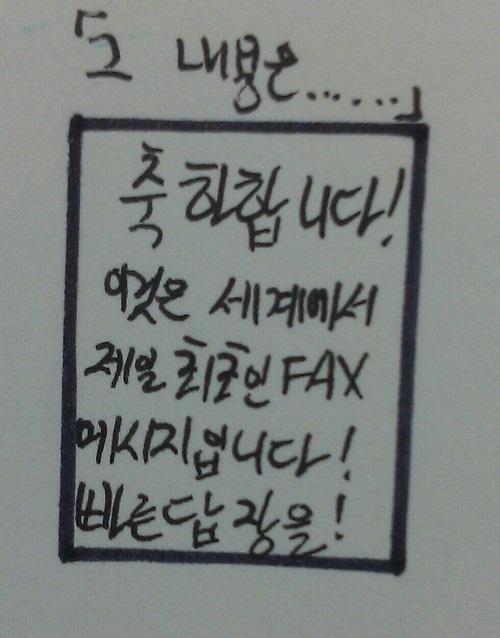 「그 내용은......」
축하합니다!
이것은 세계에서
제일 최초인 FAX
메시지입니다!
빠른답장을!